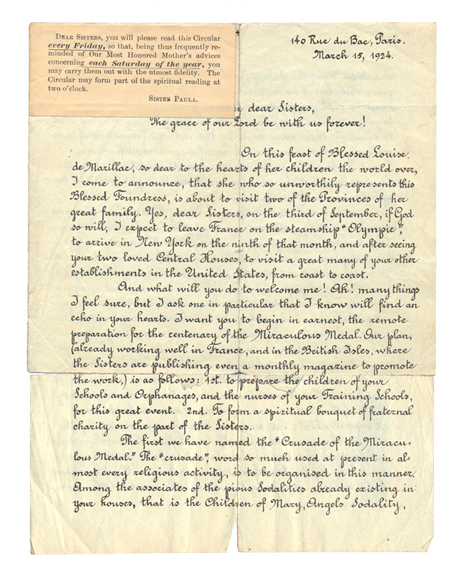 DEAR SISTERS, you will please read this Circular
every Friday, so that, being thus frequently re-
minded of Our Most Honored Mother's advices
concerning each Saturday of the year, you
may carry them out with the utmost fidelity. The
Circular may form part of the spiritual reading at
two o'clock.
SISTER PAULA.
140 Rue du Bac, Paris.
March 15, 1924.
dear Sisters,
The grace of our Lord be with us forever!
On this feast of Blessed Louise
de Marillac, so dear to the hearts of her children the world over,
I come to announce, that she who so unworthily represents this
Blessed Foundress, is about to visit two of the Provinces of her
great family. Yes, dear Sisters, on the third of September, if God
so will, I expect to leave France on the steamship "Olympic",
to arrive in New York on the ninth of that month, and after seeing
your two loved Central Houses, to visit a great many of your other
establishments in the United States, from coast to coast.
And what will you do to welcome me! Ah! many things
I feel sure, but I ask one in particular that I know will find an
echo in your hearts. I want you to begin in earnest, the remote
preparation for the centenary of the Miraculous Medal. Our plan,
(already working well in France, and in the British Isles, where
the Sisters are publishing even a monthly magazine to promote
the work,) is as follows: 1st. to prepare the children of your
Schools and Orphanages, and the nurses of your Training Schools,
for this great event. 2nd. To form a spiritual bouquet of fraternal
charity on the part of the Sisters.
The first we have named the "Crusade of the Miracu-
lous Medal." The "crusade", word so much used at present in al-
most every religious activity, is to be organised in this manner.
Among the associates of the pious Sodalities already existing in
your houses, that is the Children of Mary, Angels' Sodality,